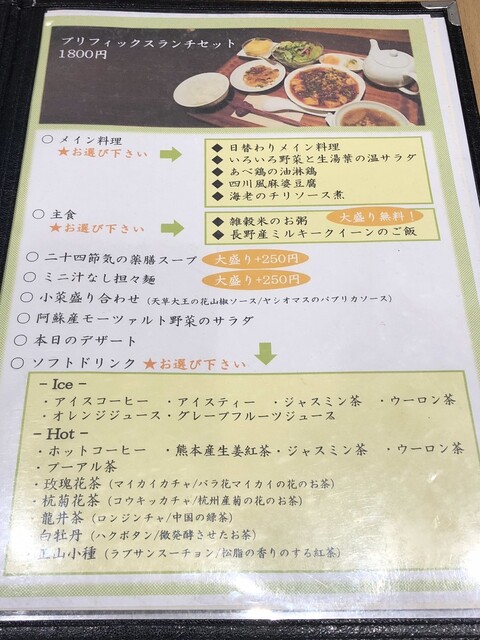 プリフィックスランチセット
1800円
○ メイン料理
★お選び下さい
◆ 日替わりメイン料理
◆ いろいろ野菜と生湯葉の温サラダ
◆ あべ鶏の油淋鶏
◆ 四川風麻婆豆腐
◆ 海老のチリソース煮
○ 主食
★お選び下さい
◆ 雑穀米のお粥 大盛り無料！
◆ 長野産ミルキークイーンのご飯
○ 二十四節気の薬膳スープ 大盛り+250円
○ ミニ汁なし担々麺 大盛り+250円
○ 小菜盛り合わせ (天草大王の花山椒ソース/ヤシオマスのパプリカソース)
○ 阿蘇産モーツァルト野菜のサラダ
○ 本日のデザート
○ ソフトドリンク ★お選び下さい
- Ice -
・アイスコーヒー ・アイスティー ・ジャスミン茶 ・ウーロン茶
・オレンジジュース・グレープフルーツジュース
- Hot -
・ホットコーヒー ・熊本産生姜紅茶・ジャスミン茶 ・ウーロン茶
・プーアル茶
・玫瑰花茶 (マイカイカチャ/バラ花マイカイの花のお茶)
・杭菊花茶 (コウキッカチャ/杭州産菊の花のお茶)
・龍井茶 (ロンジンチャ/中国の緑茶)
・白牡丹 (ハクボタン/微発酵させたお茶)
・正山小種 (ラプサンスーチョン/松脂の香りのする紅茶)